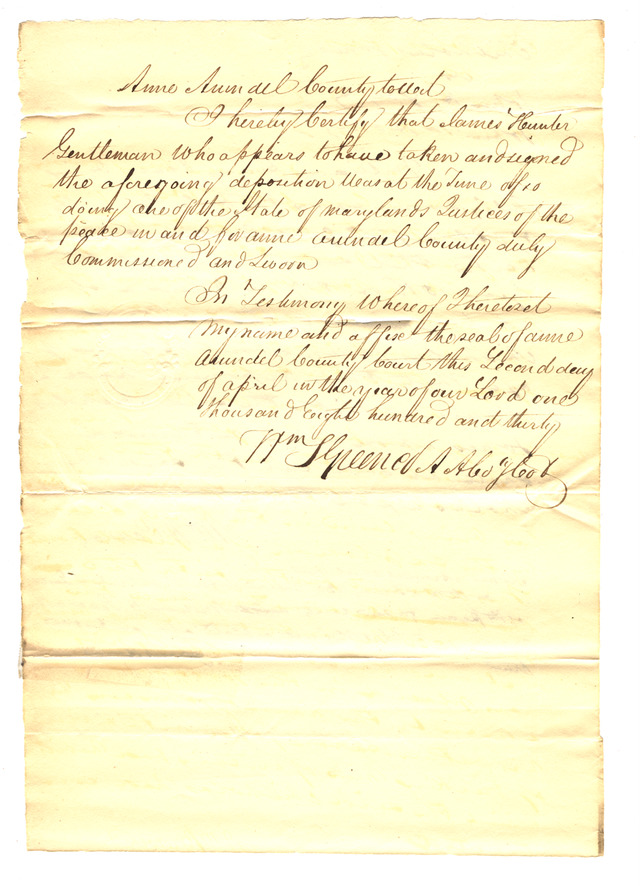 Anne Arundel County to wit
I hereby Certify that James Hunter
Gentleman who appears to have taken and signed
the aforegoing deposition was at the time of so
doing one of the State of marylands Justices of the
peace in and for anne arundel County duly
Commissioned and Sworn
In Testimony whereof I hereto set
my name and affix the seal of anne
arundel County Court this Second day
of april in the year of our Lord one
thousand Eight hundred and thirty
Wm S Green